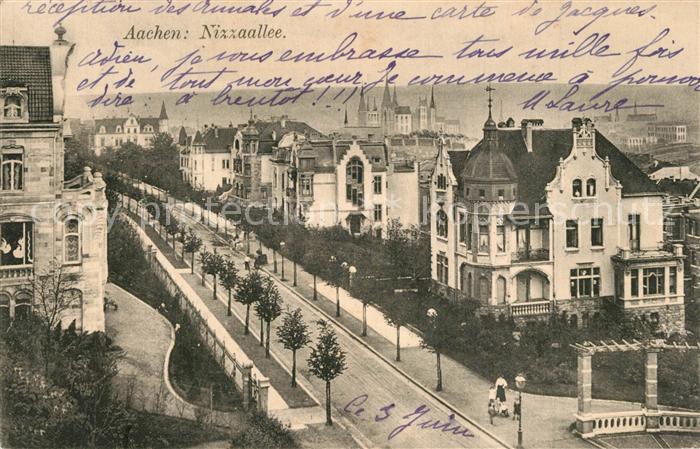 réception des annales et d'une carte de Jacques.
Aachen: Nizzaallee.
Adieu, je vous embrasse tous mille fois
et de tout mon cœur je commence à pouvoir
dire à bientôt!!!
M. Laure
Ce 3 Juin